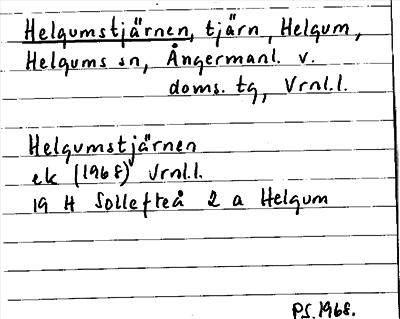 Helgumstjärnen, tjärn, Helgum,
Helgums sn, Ångermanl. v.
doms. tg, Vrnl.l.
Helgumstjärnen
ek (1968) Vrnl.l.
19 H Sollefteå 2 a Helgum
PS. 1968.